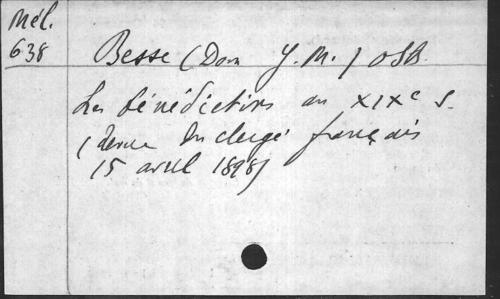 Mél.
638
Besse (Dom J. M.) OSB.
Les bénédictins au XIXe s.
(Revue du clergé français
15 avril 1898)